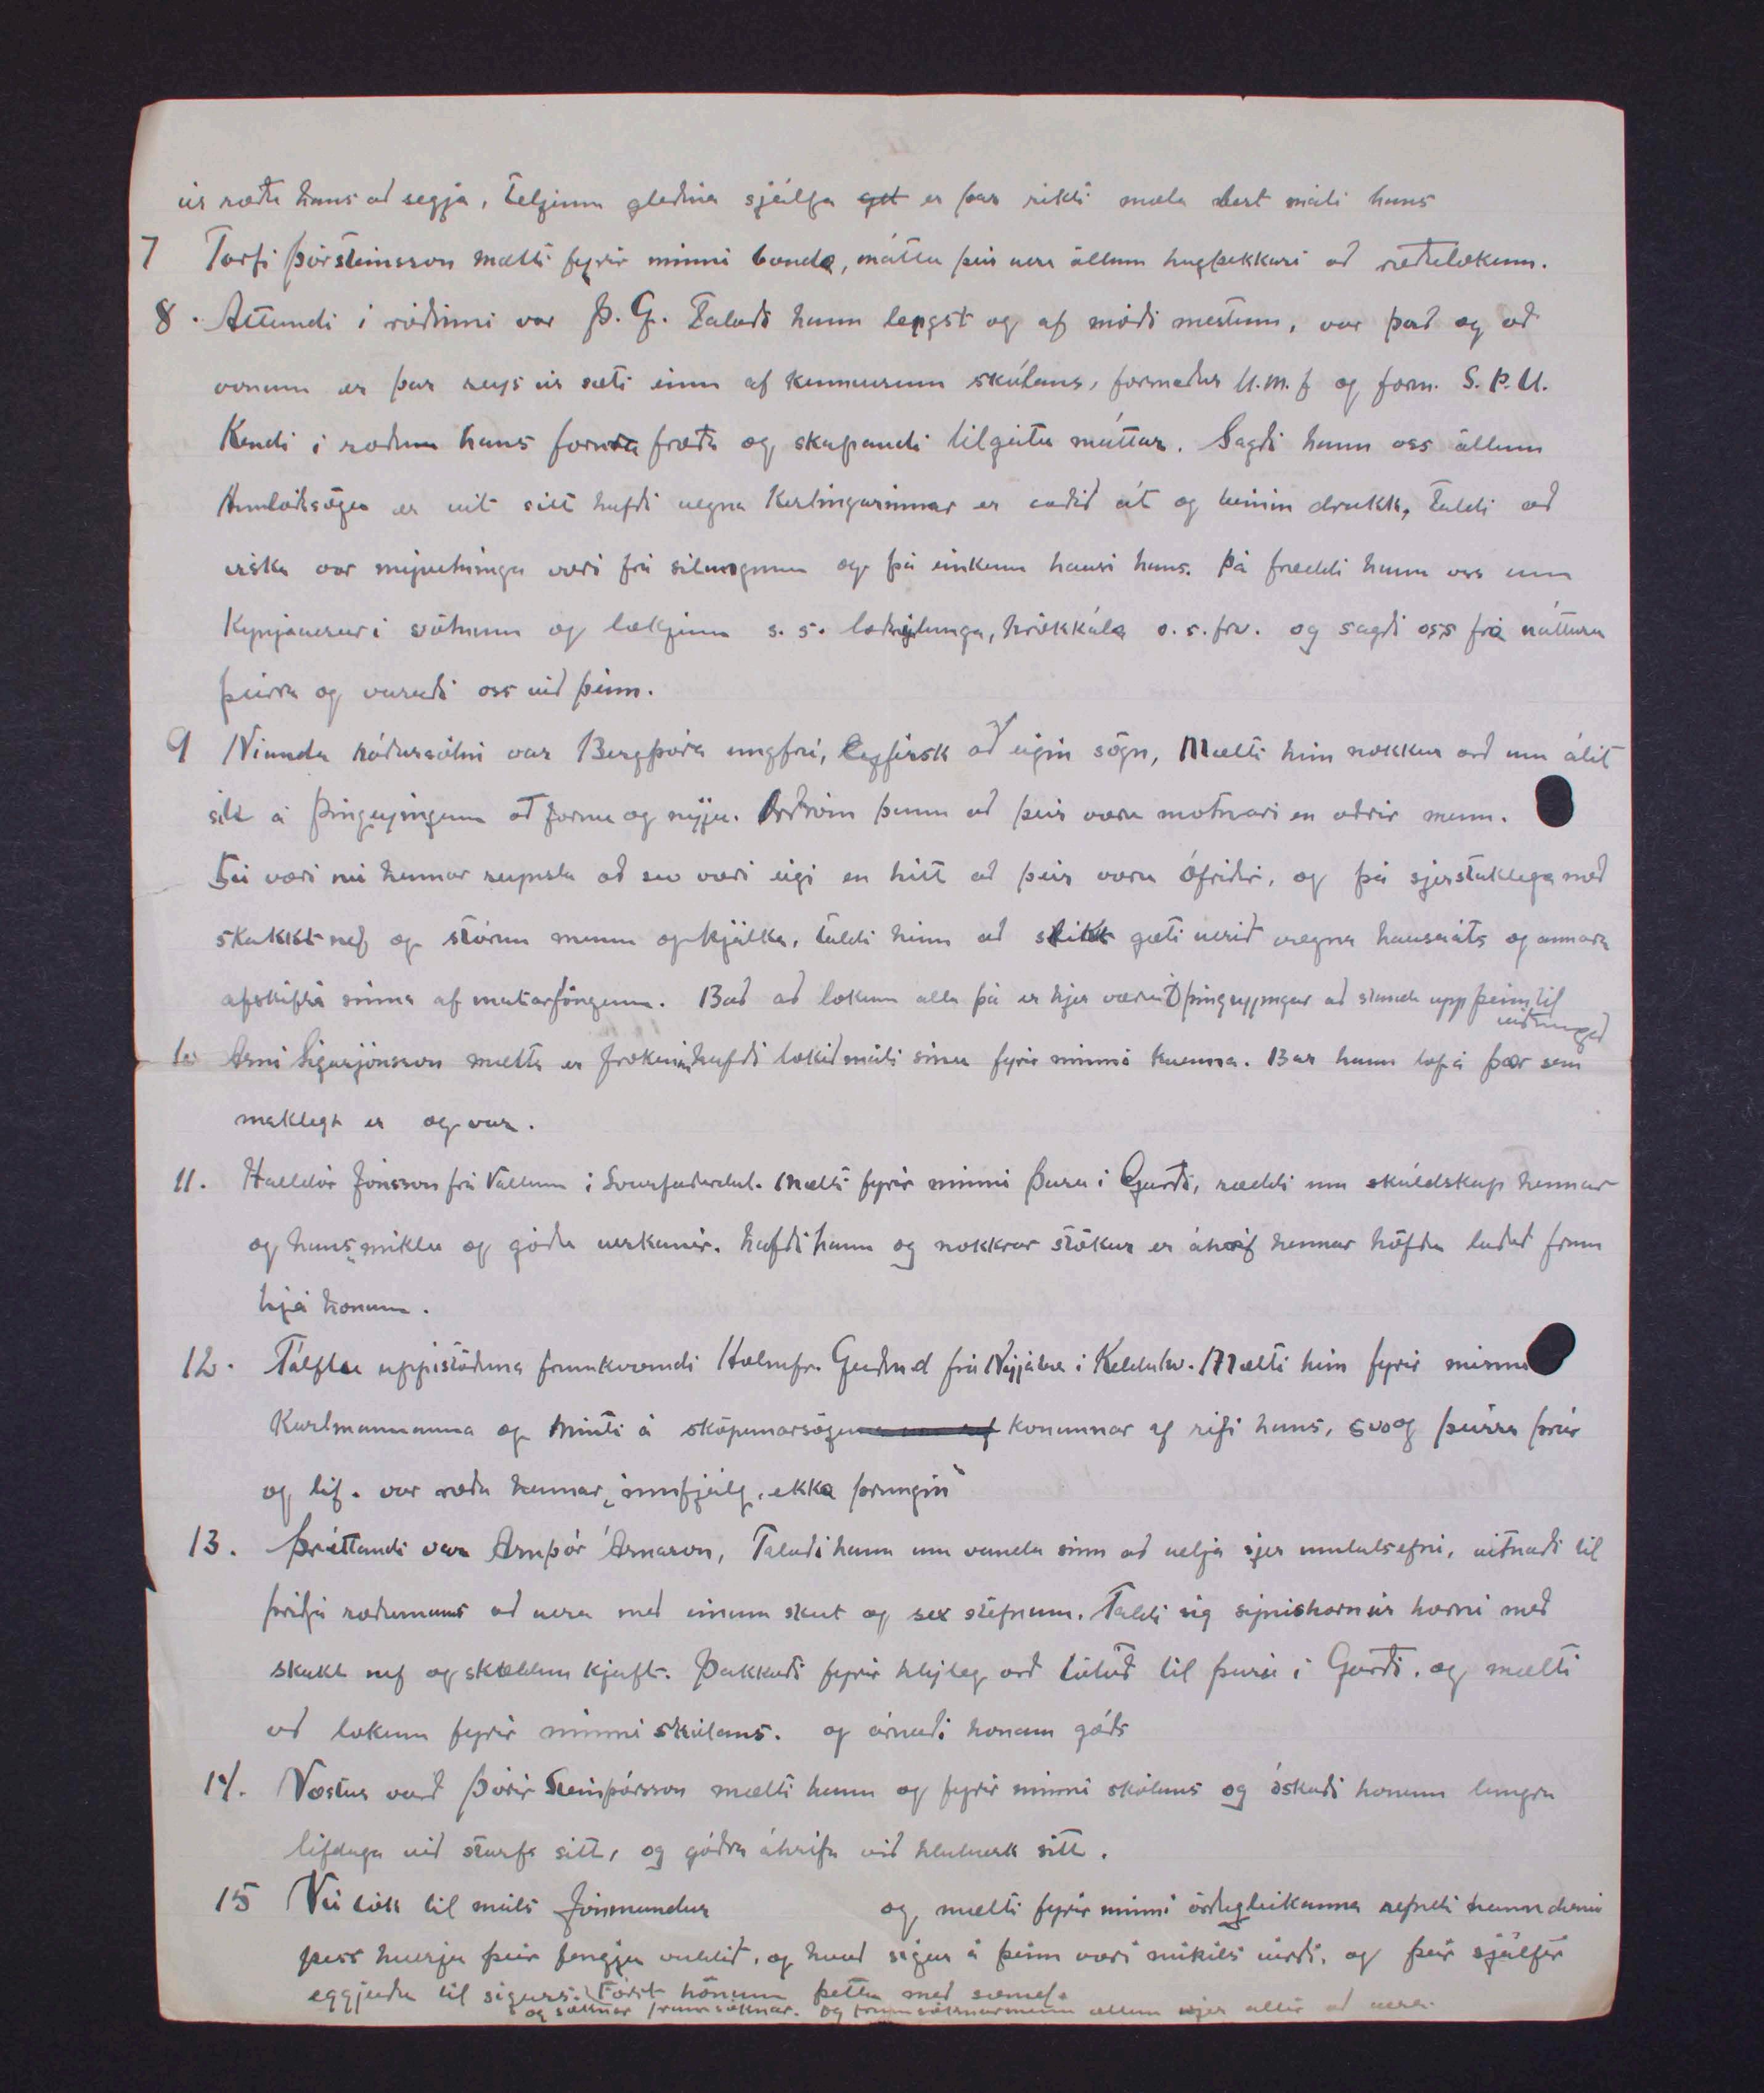 úr ræðu hans að segja, teljum gleðina sjálfa get er þar rikti mæla best máli hans
7 Torfi Þórsteinsson mælti fyrir minni bænda, máttu þeir vera öllum hugþekkari að ræðulokum.
8. Áttundi í röðinni var Þ. G. Talaði hann lengst og af móði mestum, var það og að
vonum er þar reys úr sæti einn af kennurum skólans, formaður U.M.f og form. S.Þ.U.
Kendi í ræðum hans fornra fræða og skapandi tilgátu máttar. Sagði hann oss öllum
Amloðasögu er vit sitt hafði vegna Kerlingarinnar er át og drukk, taldi að
viska vor mývetninga væri frá silungnum og þá einkum hausi hans. Þá fræddi hann oss um
Kynjaverur í vötnum og lækjum s.s. loðsilunga, hrökkála o.s.frv. og sagði oss frá náttúru
þeirra og varaði oss við þeim.
9 Níunda í var Bergþóra ungfrú, Eyfirsk að eigin sögn, Mælti hún nokkur orð um álit
sitt á Þingeyingum að fornu og nýju. Orðróm þann að þeir væru montnari en aðrir menn.
Sú væri nú hennar reynsla að svo væri eigi en hitt að þeir væru ófríðir, og þá sjerstaklega með
skakkt nef og stóran munn og kjálka, taldi hún að slikt gæti verið vegna hausaáts og annara
afskipta sinna af matarföngum. Bað að lokum alla þá er hjer væru Þingeyingar að standa upp þeim til
viðrungað
10 Arni Sigurjónsson mælti er frökenin hafði lokið máli sínu fyrir minni kvenna. Bar hann lof á þær sem
maklegt er og var.
11. Halldór Jónsson frá Völlum í Svarfaðardal. Mælti fyrir minni Þuru í Garði, ræddi um skáldskap hennar
og hans miklu og góðu verkanir. hafði hann og nokkrar stökur er áhrif hennar höfðu laðað fram
hjá honum.
12. Tólftu uppistöðuna framkvæmdi Hólmfr. Guðnad frá Nýjabæ í Kelduhv. Mælti hún fyrir minni
Karlmannanna og minti á sköpunarsögu konunnar af rifi hans, svo og þeirra þrár
og líf. var ræða hennar „innfjálg, ekka þrungin“
13. Þréttandi var Arnþór Árnason, Talaði hann um vanda sinn að velja sjer umtalsefni, vitnaði til
þriðja ræðumanns að vera með einum skut og sex stefnum. Taldi sig sýnishorn úr horni með
skakt nef og skældan kjaft. Þakkaði fyrir hlýleg orð töluð til Þuru í Garði, og mælti
að lokum fyrir minni skólans. og árnaði honum góðs
14. Næstur varð Þórir Steinþórsson mælti hann og fyrir minni skólans og óskaði honum langra
lifdaga við starfa sitt, og góðra áhrifa við hlutverk sitt.
15 Nú tók til máls Jónmundur og mælti fyrir minni örðugleikanna nefndi hann dæmi
þess hverju þeir fengju valdið, og hvað sigur á þeim væri mikils virði, og þeir sjálfir
eggjuðu til sigurs. Fórst honum þetta með sæmd.
og sóknar framsóknar. og framsóknarmenn ættum vjer allir að vera.